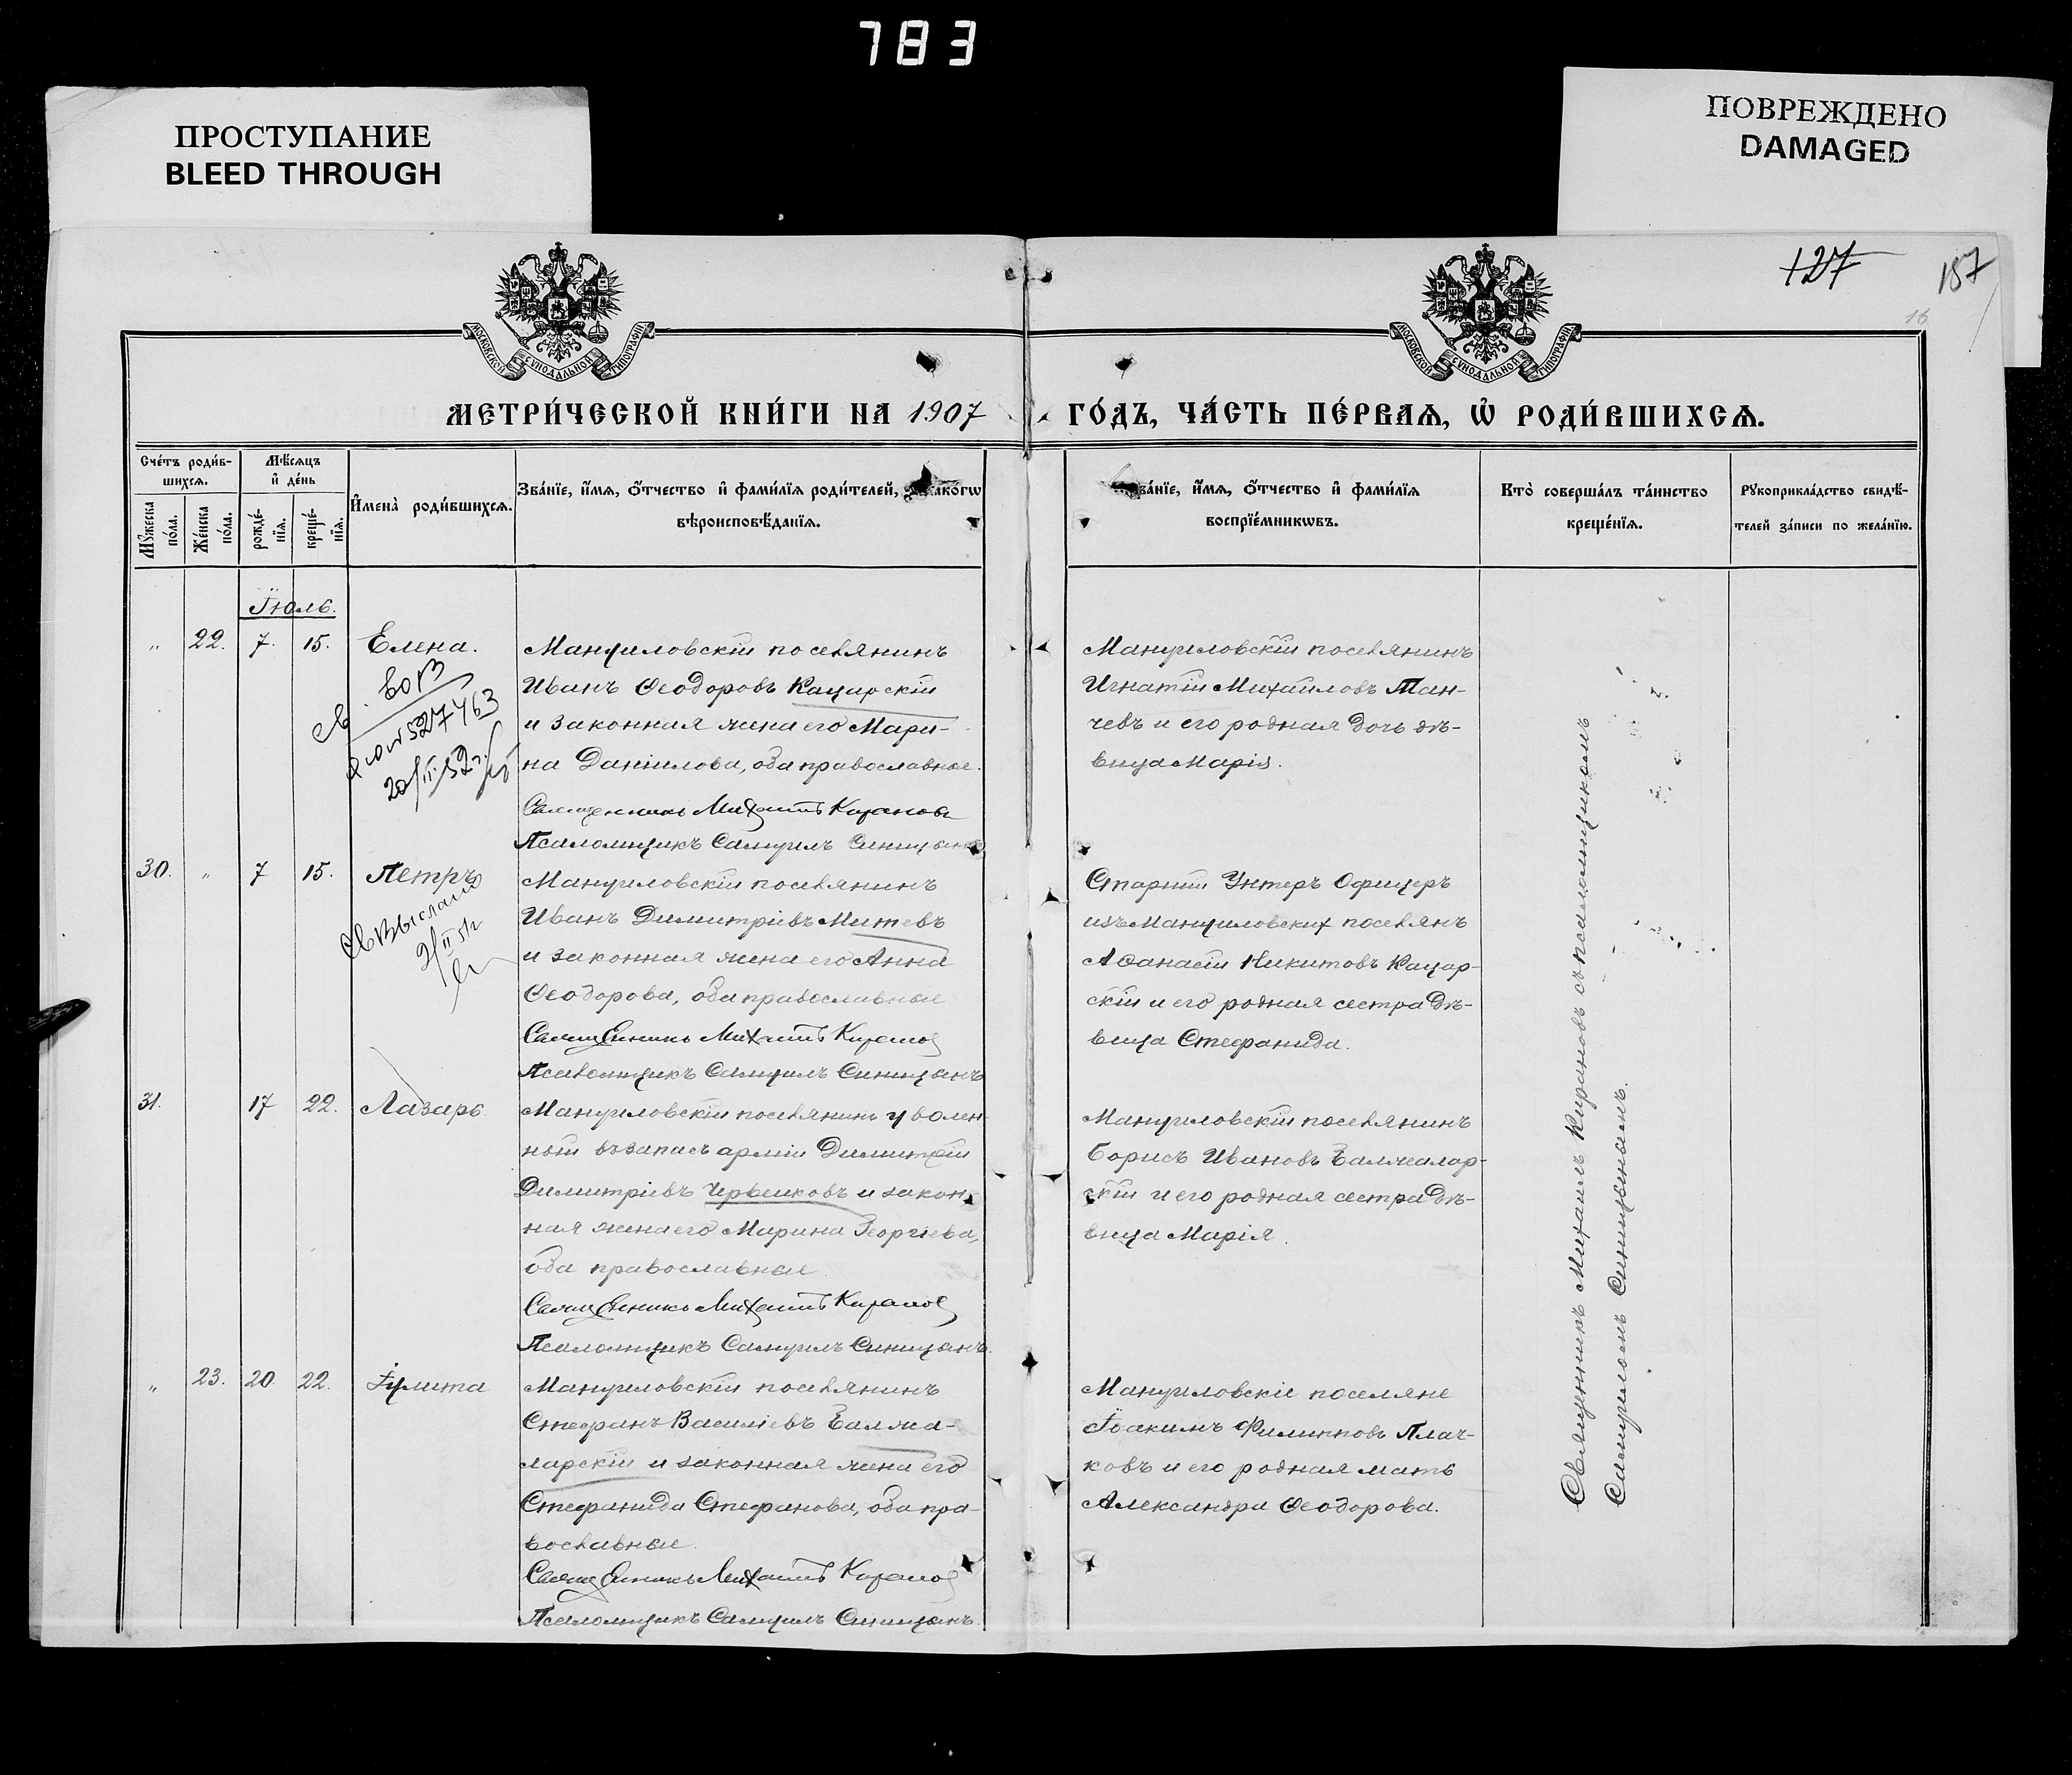 783
ПРОСТУПАНИЕ
BLEED THROUGH
ПОВРЕЖДЕНО
DAMAGED
127
157
16
МОСКОВСКОЙ СѴНОДАЛЬНОЙ ТИПОГРАФІИ
МОСКОВСКОЙ СѴНОДАЛЬНОЙ ТИПОГРАФІИ
МЕТРИ́ЧЕСКОЙ КНИ́ГИ НА 1907
ГО́ДЪ, ЧА́СТЬ ПЕ́РВАѦ, Ѡ҆ РОДИ́ВШИХСѦ.
Сче́тъ роди́в-
шихсѧ.
Мꙋжеска по́ла.
Же́нска по́ла.
Мѣ́сѧцъ
и҆ де́нь
рожде́-
нїѧ.
креще́-
нїѧ.
И҆мена̀ роди́вшихсѧ.
Зва́нїе, и҆́мѧ, ѻ҆́тчество и҆ фами́лїѧ роди́телей, како́гѡ
вѣроисповѣ́данїѧ.
зва́нїе, и҆́мѧ, ѻ҆́тчество и҆ фами́лїѧ
воспрїе́мникѡвъ.
Кто̀ соверша́лъ та́инство
креще́нїѧ.
Рꙋкоприкла́дство свидѣ́-
телей за́писи по жела́нїю.
Іюль.
" 22. 7. 15. Елена.
Мануиловскій поселянинъ
Иванъ Ѳеодоровъ Кацарскій
и законная жена его Мари-
на Даніилова, оба православные.
Священникъ Михаилъ Кирановъ
Псаломщикъ Самуилъ Синицынъ
527463
20/II 52г.
Мануиловскій поселянинъ
Игнатій Михаиловъ Тан-
чевъ и его родная дочь дѣ-
вица Марія.
30. " 7 15. Петръ
Св выслано
2/II 51г
Мануиловскій поселянинъ
Иванъ Димитріевъ Митевъ
и законная жена его Анна
Ѳеодорова, оба православные
Священникъ Михаилъ Кирановъ
Псаломщикъ Самуилъ Синицынъ
Старшій Унтеръ Офицеръ
изъ Мануиловскихъ поселянъ
Аѳанасій Никитовъ Кацар-
скій и его родная сестра дѣ-
вица Стефанида.
31. 17 22. Лазарь
Мануиловскій поселянинъ уволен-
ный въ запасъ арміи Димитрій
Димитріевъ Червенковъ и закон-
ная жена его Марина Георгіева,
оба православные
Священникъ Михаилъ Кирановъ
Псаломщикъ Самуилъ Синицынъ.
Мануиловскій поселянинъ
Борисъ Ивановъ Балжалар-
скій и его родная сестра дѣ-
вица Марія.
" 23. 20. 22. Іулита
Мануиловскій поселянинъ
Стефанъ Василіевъ Балжа-
ларскій и законная жена его
Стефанида Стефанова, оба пра-
вославные.
Священникъ Михаилъ Кирановъ
Псаломщикъ Самуилъ Синицынъ.
Мануиловскіе поселяне
Іоакимъ Филипповъ Плач-
ковъ и его родная мать
Александра Ѳеодорова.
Священникъ Михаилъ Кирановъ съ псаломщикомъ
Самуиломъ Синицынымъ.